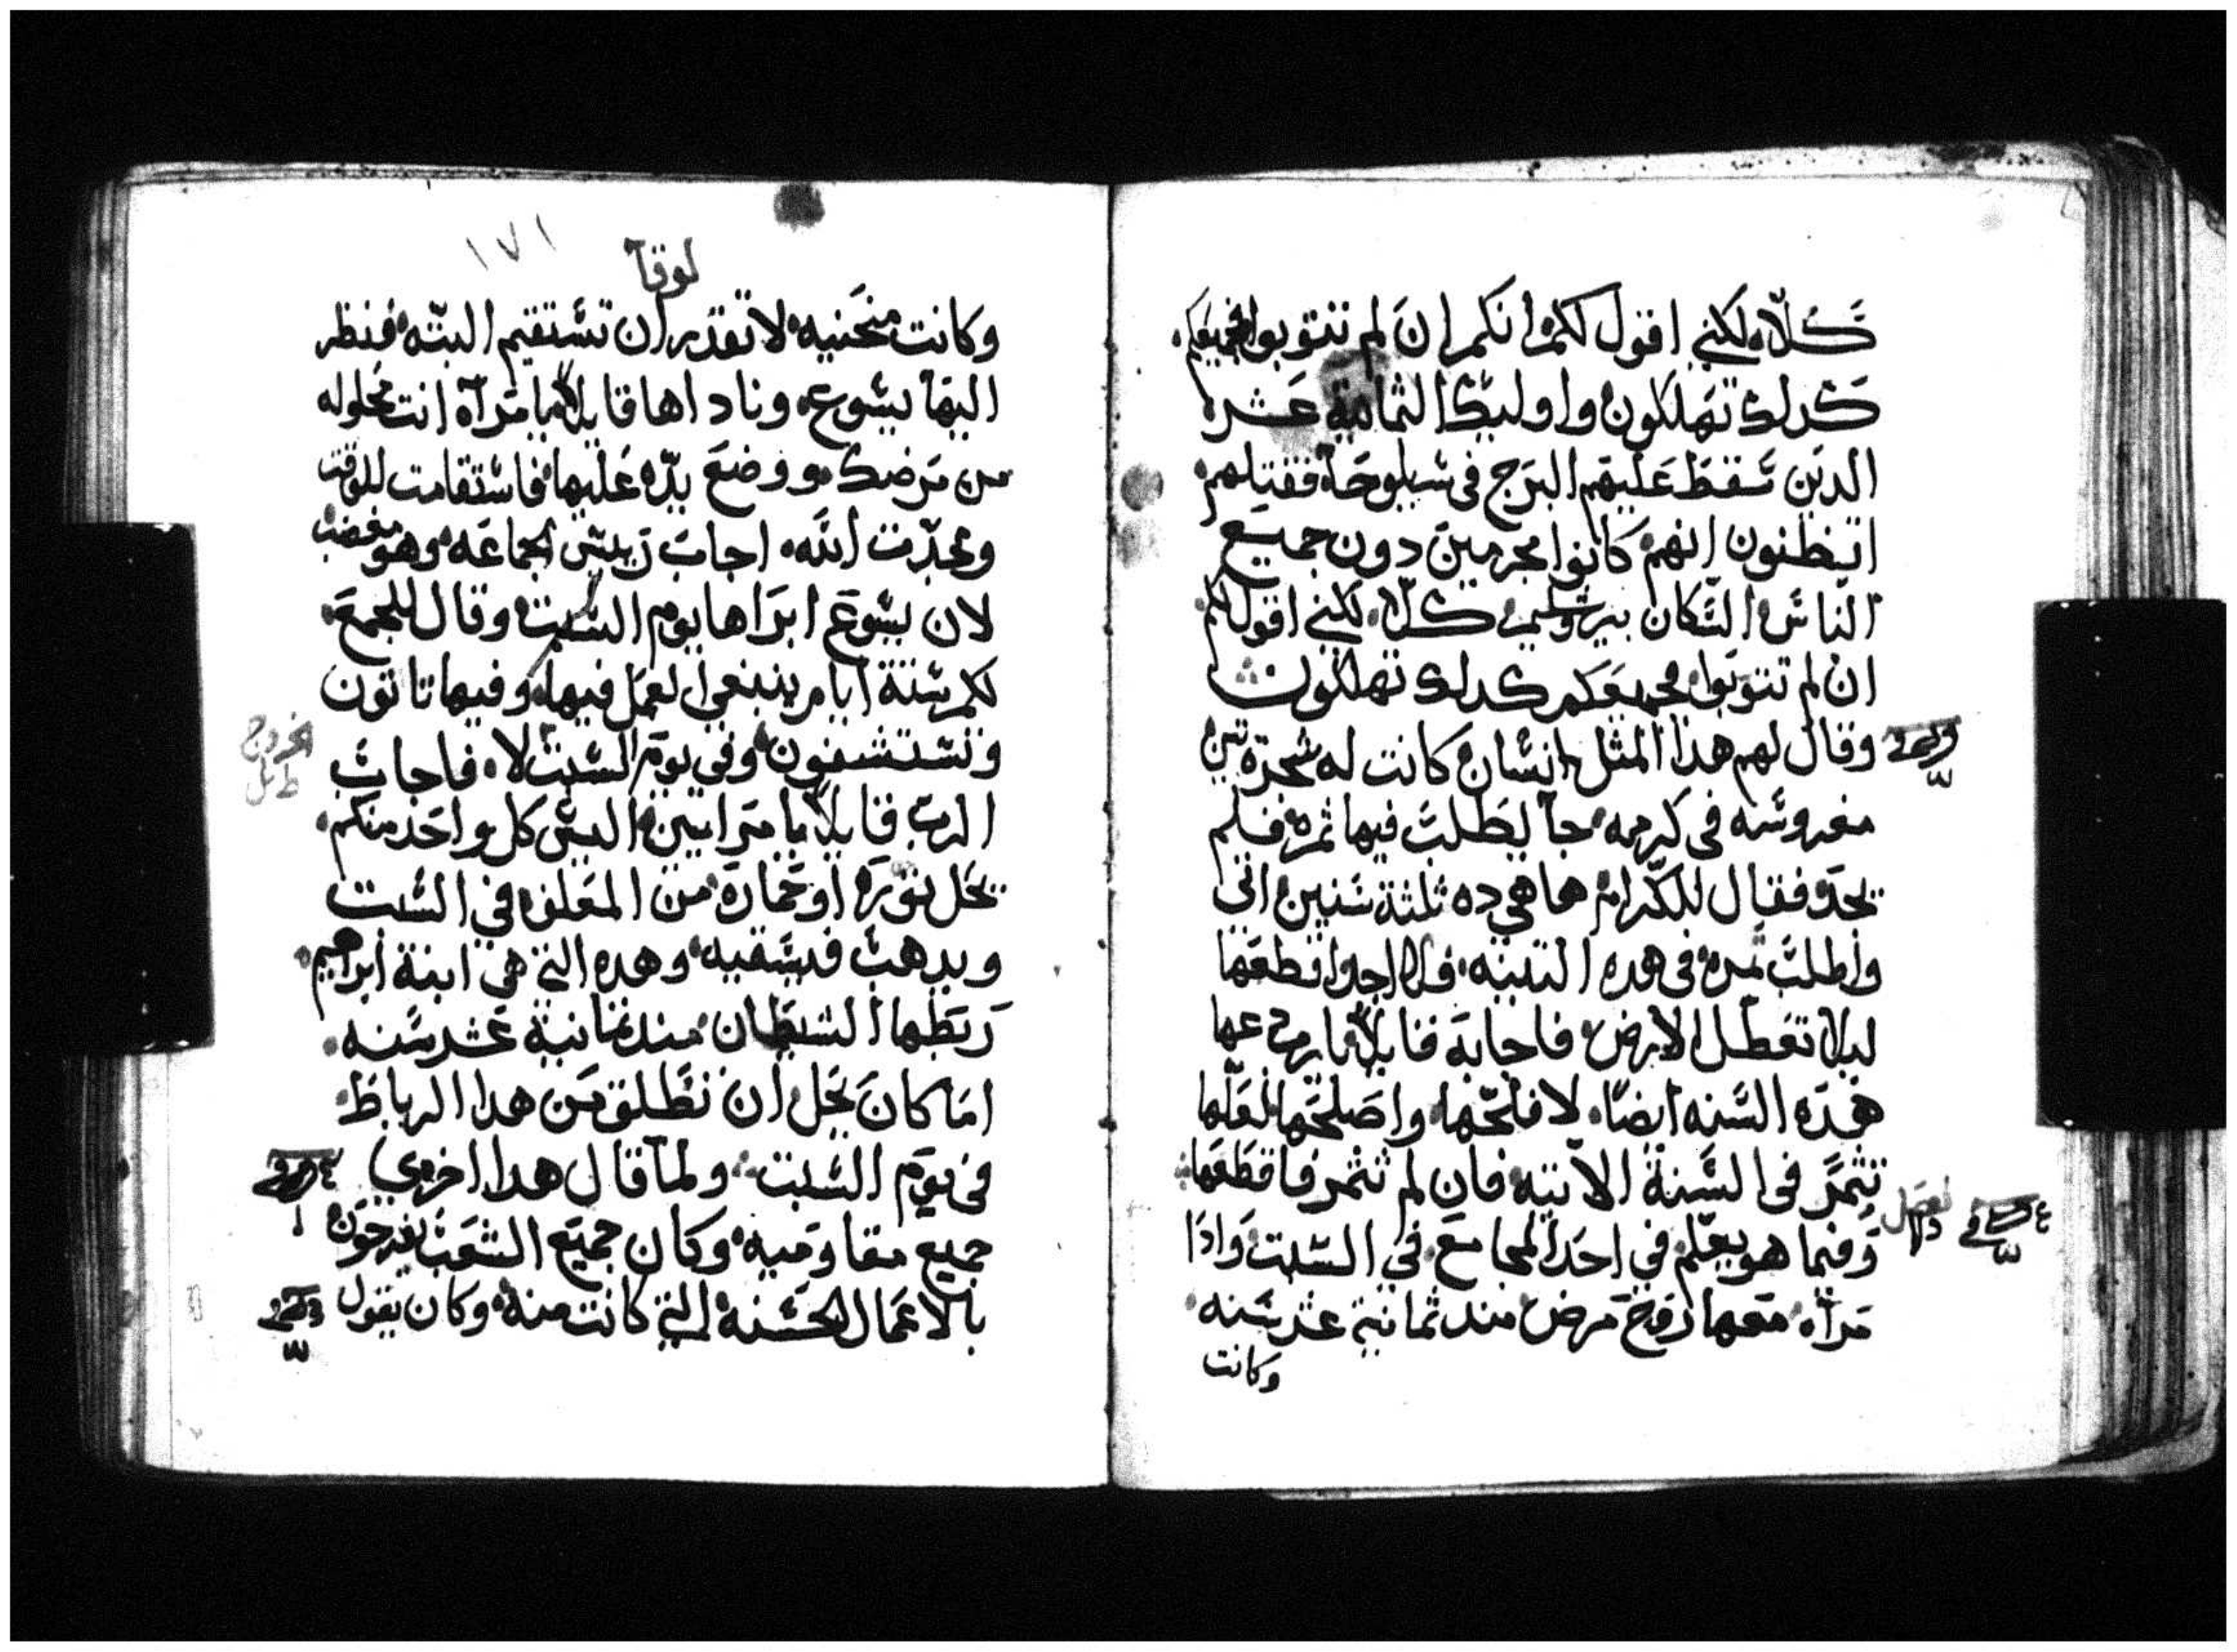 كلا لكني اقول لكم انكم ان لم تتوبوا جميعكم
كدلك تهلكون واوليك الثمانية عشر
الدين سقط عليهم البرج في شيلوحا فقتلهم
اتظنون انهم كانوا مجرمين دون جميع
الناس السكان بيروشليم كلا لكني اقول لكم
ان لم تتوبوا جميعكم كدلك تهلكون
وقال لهم هدا المثل انسان كانت له شجرة تين
مغروسه في كرمه جا ليطلب فيها ثمره فلم
يجد فقال للكرام ها هي ده ثلثة سنين اتي
واطلب ثمره في هده التينه فلا اجد اقطعها
ليلا تعطل الارض فاجابه قايلا يارب دعها
هده السنه ايضا لافلحها واصلحها لعلها
تثمر في السنة الاتيه فان لم تثمر فاقطعها
وفيما هو يعلم في احد المجامع في السبت وادا
مراه معها روح مرض مند ثمانية عشر سنه
وكانت
١٧١
لوقا
وكانت منحنيه لا تقدر ان تستقيم البته فنظر
اليها يسوع وناداها قايلا يا مراه انت محلوله
من مرضك ووضع يده عليها فاستقامت للوقت
ومجدت الله اجاب رييس الجماعه وهو مغضب
لان يسوع ابراها يوم السبت وقال للجمع
لكم ستة ايام ينبغي العمل فيها وفيها تاتون
وتستشفون وفي يوم السبت لا فاجاب
الخروج
الرب قايلا يا مرايين اليس كل واحد منكم
يحل ثوره او حماره من المعلف في السبت
ويدهب فيسقيه وهده التي هي ابنة ابراهيم
ربطها الشيطان مند ثمانية عشر سنه
اما كان يحل ان تطلق من هدا الرباط
في يوم السبت ولما قال هدا اخزي
جميع مقاوميه وكان جميع الشعب يفرحون
بالاعمال الحسنه التي كانت منه وكان يقول